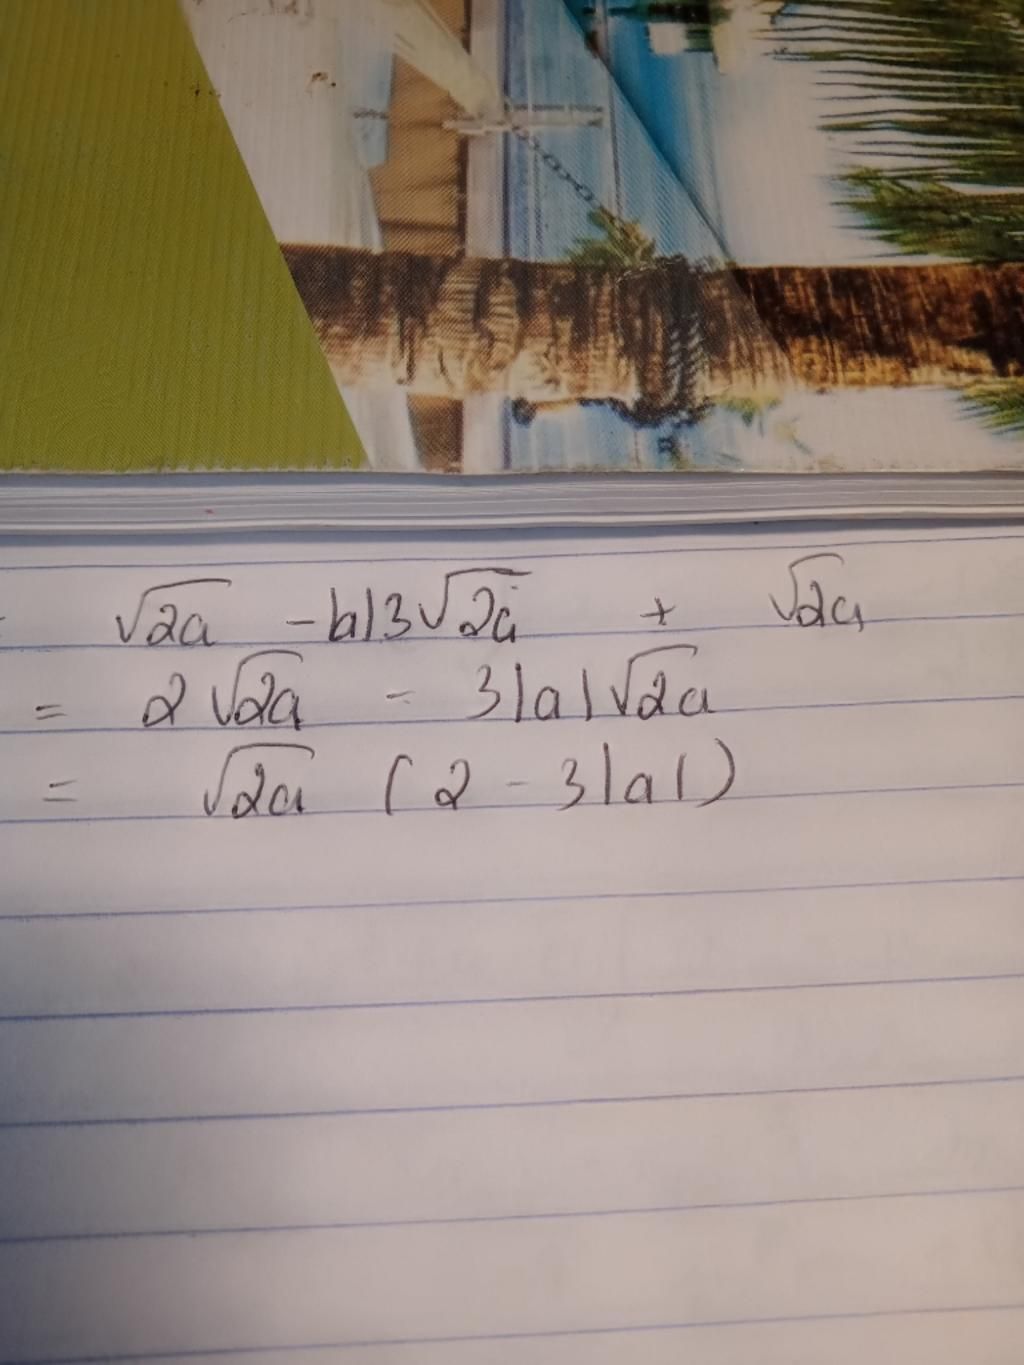 √2a - |a|3√2a + √2a
= 2√2a - 3|a|√2a
= √2a (2 - 3|a|)